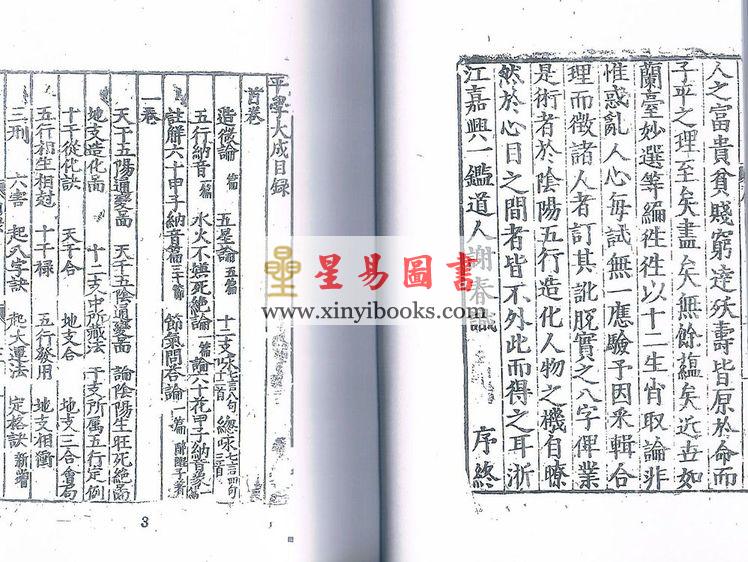 人之富貴貧賤窮達殀壽皆原於命而
子平之理至矣盡矣無餘蘊矣近世如
蘭臺妙選等編徃徃以十二生肖取論非
惟惑亂人心每試無一應驗予因采輯合
理而徵諸人者訂其訛脫實之八字俾業
是術者於陰陽五行造化人物之機自瞭
然於心目之間者皆不外此而得之耳浙
江嘉興一鑑道人 春識 序終
平學大成目録
首卷
造微論 篇 五星論 五篇 十二支咏 七言八句 十二首 總咏 七言四句
五行納音 篇 水火不嫌死絶論 篇 論六十花甲子納音象
註解六十甲子納音篇 三十篇 節氣問答論 一篇 醉醒子著
一卷
天干五陽通變圖 天干五陰通變圖 論陰陽生旺死絶圖
地支造化圖 十二支中所藏法 干支所属五行定例
十干從化訣 天干合 地支合 地支三合會局
五行相生相尅 十干禄 五行發用 地支相衝
三刑 六害 起八字訣 起大運法 定格訣 新增
3
星易圖書
www.xinyibooks.com